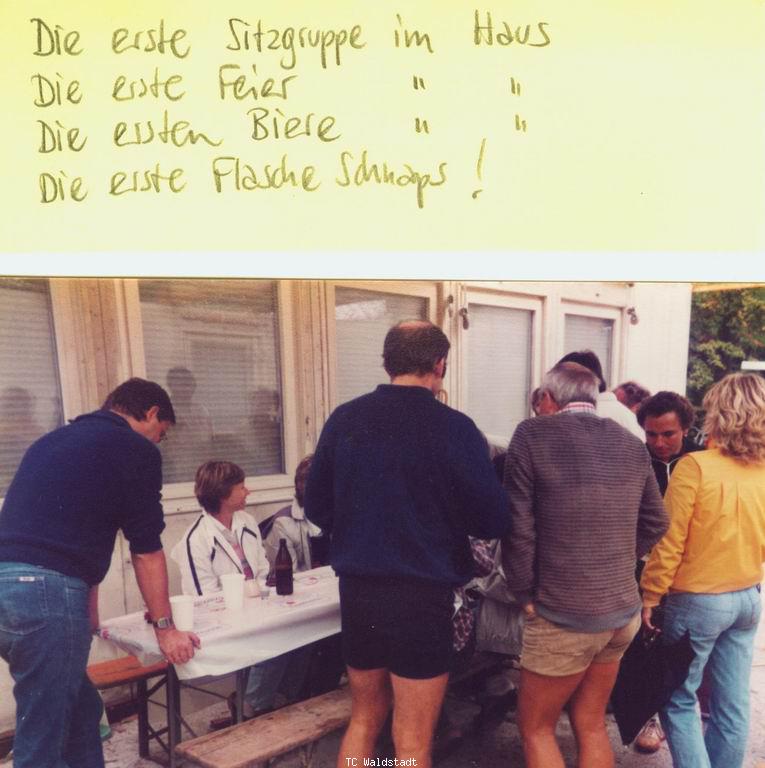 Die erste Sitzgruppe im Haus
Die erste Feier " "
Die ersten Biere " "
Die erste Flasche Schnaps!
TC Waldstadt